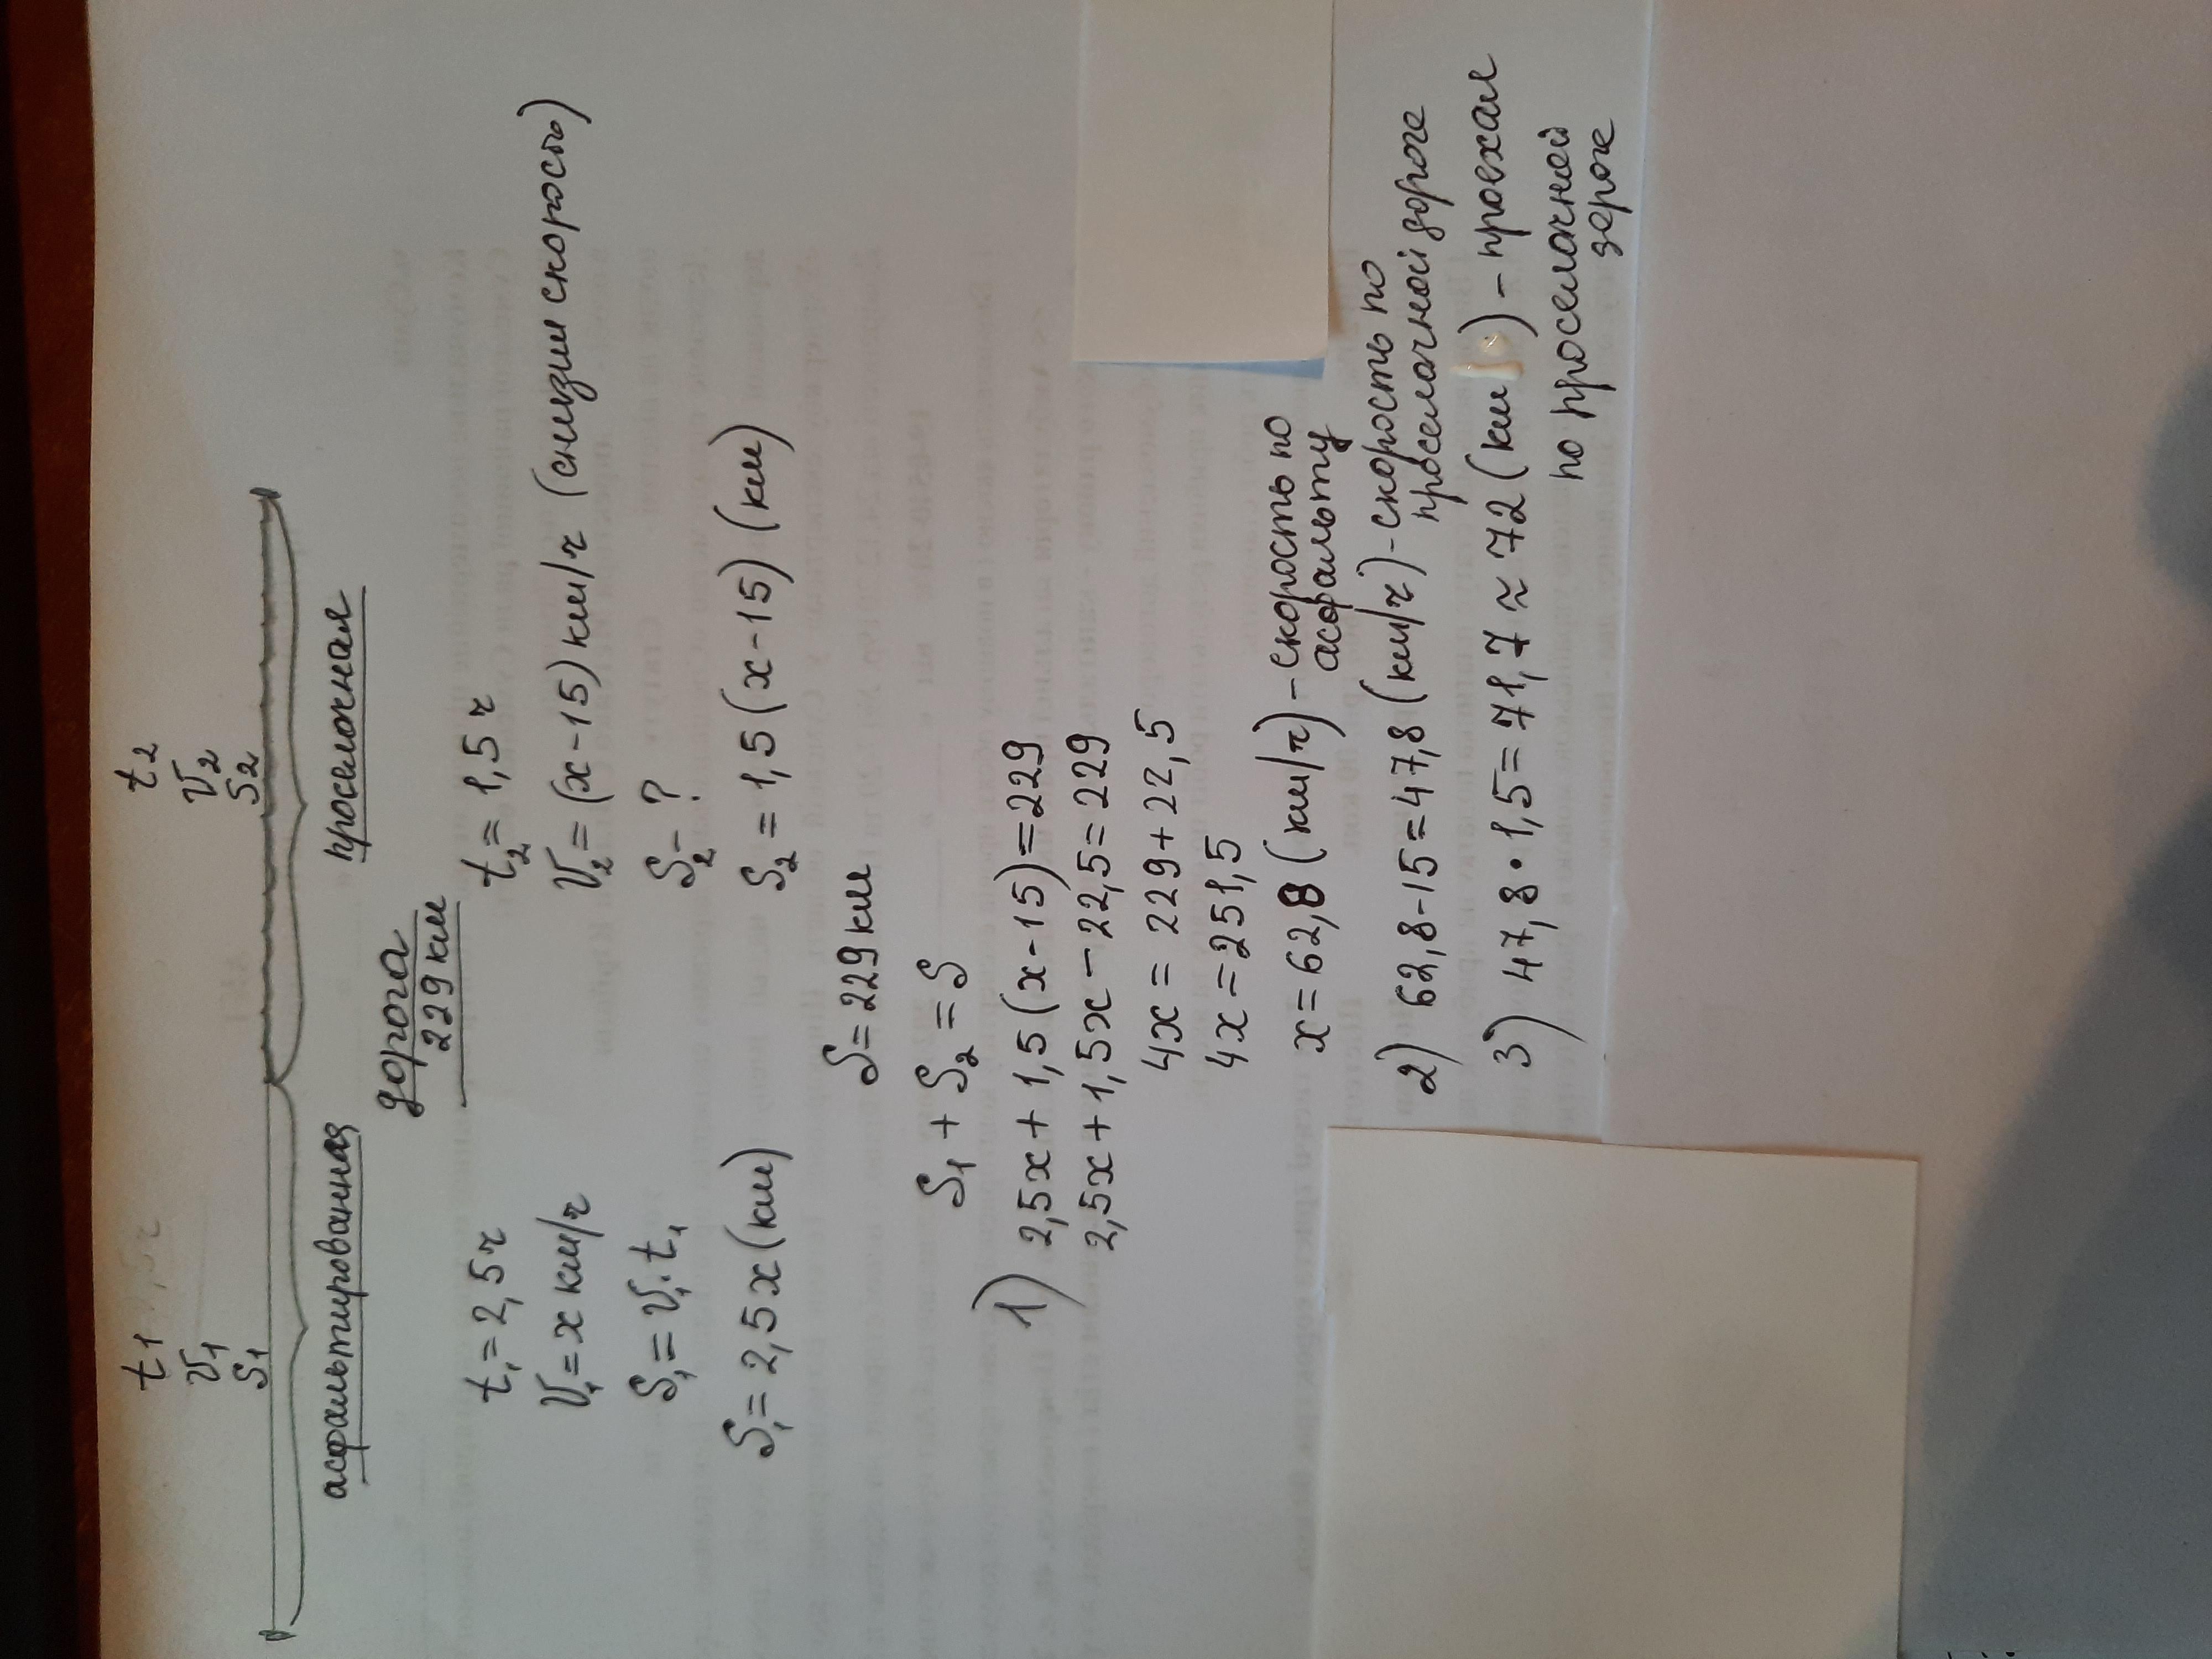 t1 t2
V1 V2
S1 S2
асфальтированная просёлочная
дорога
229 км
t₁=2,5 ч t₂=1,5 ч
V₁=x км/ч V₂=(x-15) км/ч (снизил скорость)
S₁=V₁·t₁ S₂-?
S₁=2,5x(км) S₂=1,5(x-15)(км)
S=229км
S₁+S₂=S
1) 2,5x+1,5(x-15)=229
2,5x+1,5x-22,5=229
4x=229+22,5
4x=251,5
x=62,8(км/ч)-скорость по
асфальту
2) 62,8-15=47,8(км/ч)-скорость по
просёлочной дороге
3) 47,8·1,5=71,7≈72(км)-проехал
по просёлочной
дороге